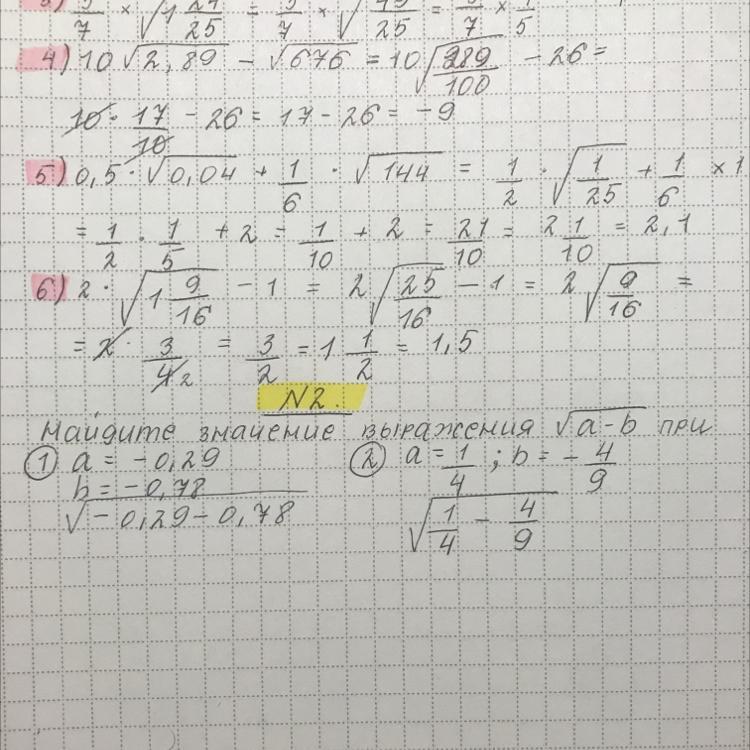 3) 5/7 × √(1 24/25) = 5/7 × √(49/25) = 5/7 × 7/5
4) 10√2,89 - √676 = 10√(289/100) - 26 =
10 · 17/10 - 26 = 17 - 26 = -9
5) 0,5 · √0,04 + 1/6 · √144 = 1/2 · √(1/25) + 1/6 × 1
= 1/2 · 1/5 + 2 = 1/10 + 2 = 21/10 = 2 1/10 = 2,1
6) 2 · √(1 9/16) - 1 = 2√(25/16) - 1 = 2√(9/16) =
= 2 · 3/4 2 = 3/2 = 1 1/2 = 1,5
N2.
Найдите значение выражения √(a-b) при
① a = -0,29 ② a = 1/4 ; b = - 4/9
b = -0,78
√(-0,29-0,78) √(1/4 - 4/9)